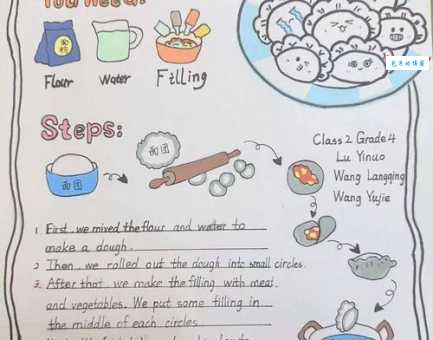 You need:
面粉
Flour
Water
Filling
包子的情景
Steps:
面团
面团
Class 2 Grade 4
Lu Yinuo
Wang Langqing
Wang Yujie
1 First, we mixed the flour and water to
make a dough.
2 Then, we rolled out the dough into small circles.
3. After that, we make the filling with meat
and vegetables. We put some filling in
the middle of each circles